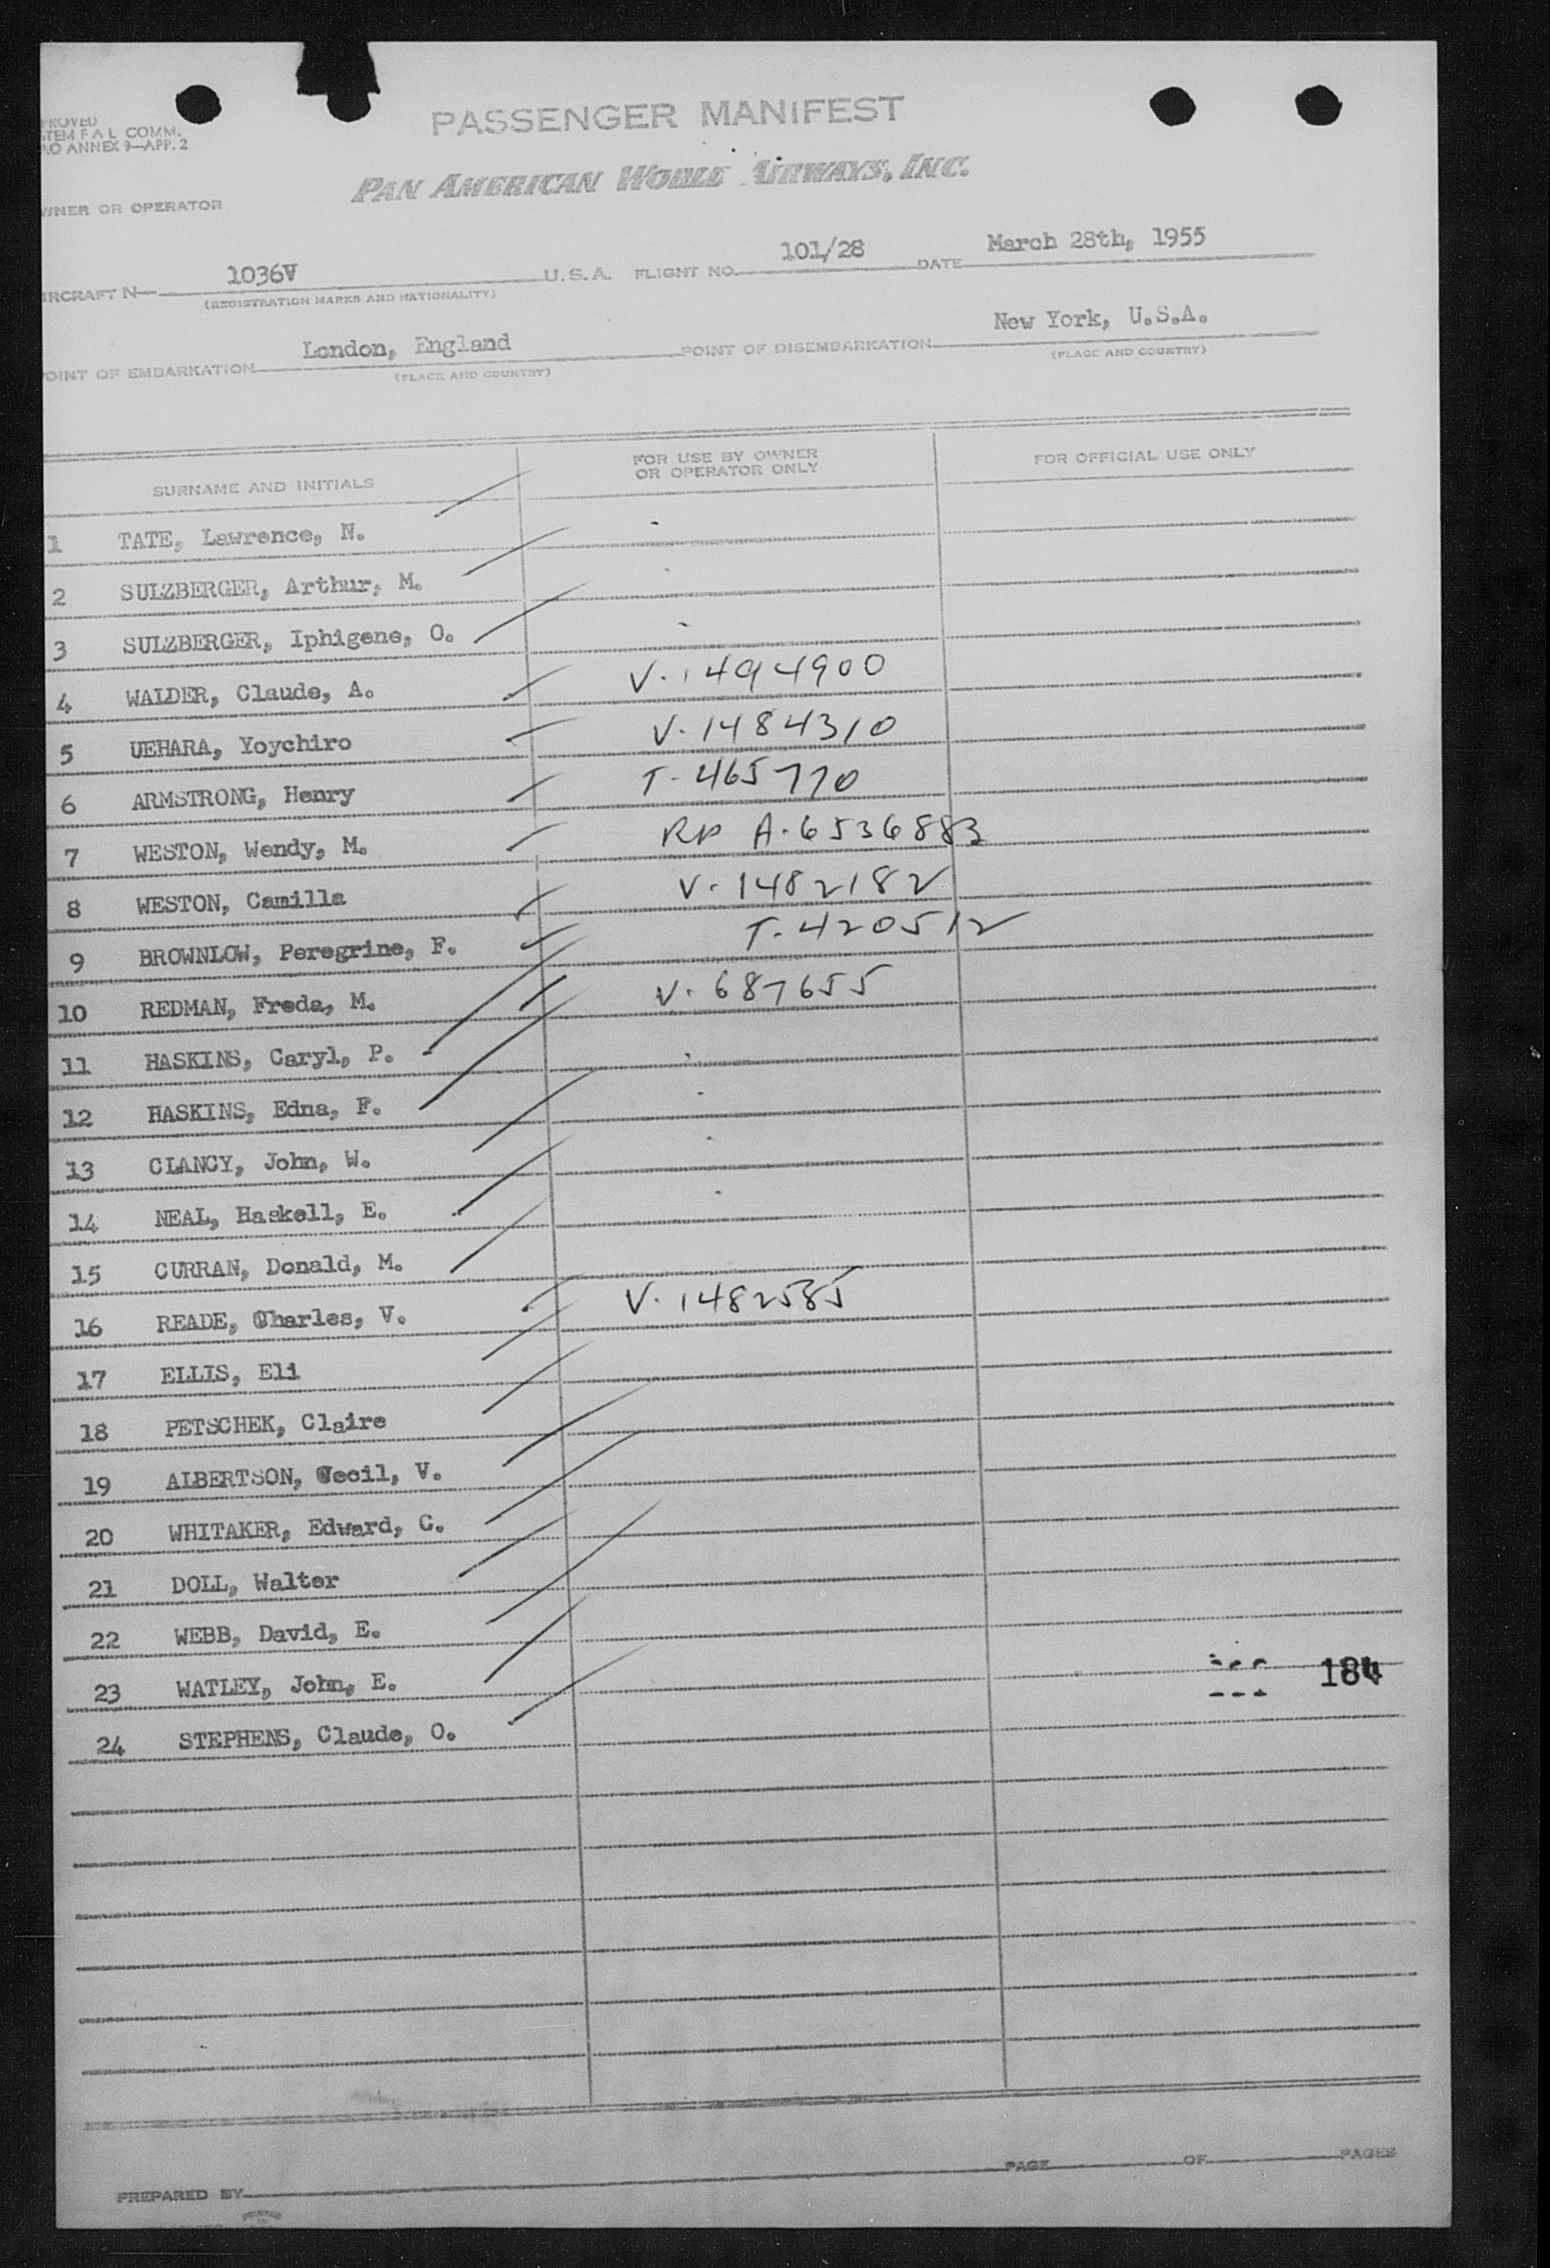 PROVED
STEM F A L COMM.
AO ANNEX 9—APP. 2
PASSENGER MANIFEST
PAN AMERICAN WORLD AIRWAYS, INC.
WNER OR OPERATOR
IRCRAFT N— 1036V U.S.A. FLIGHT NO. 101/28 DATE March 28th, 1955
(REGISTRATION MARKS AND NATIONALITY)
OINT OF EMBARKATION London, England POINT OF DISEMBARKATION New York, U.S.A.
(PLACE AND COUNTRY) (PLACE AND COUNTRY)
SURNAME AND INITIALS FOR USE BY OWNER OR OPERATOR ONLY FOR OFFICIAL USE ONLY
1 TATE, Lawrence, N.
2 SULZBERGER, Arthur, M.
3 SULZBERGER, Iphigene, O.
4 WALDER, Claude, A. V. 1494900
5 UEHARA, Yoychiro V. 1484310
6 ARMSTRONG, Henry T- 465770
7 WESTON, Wendy, M. RP A. 6536883
8 WESTON, Camilla V. 1482182
9 BROWNLOW, Peregrine, F. T. 420512
10 REDMAN, Freda, M. V. 687655
11 HASKINS, Caryl, P.
12 HASKINS, Edna, F.
13 CLANCY, John, W.
14 NEAL, Haskell, E.
15 CURRAN, Donald, M.
16 READE, Charles, V. V. 1482585
17 ELLIS, Eli
18 PETSCHEK, Claire
19 ALBERTSON, Cecil, V.
20 WHITAKER, Edward, C.
21 DOLL, Walter
22 WEBB, David, E.
23 WATLEY, John, E. 184
24 STEPHENS, Claude, O.
PAGE OF PAGES
PREPARED BY
PRINTED